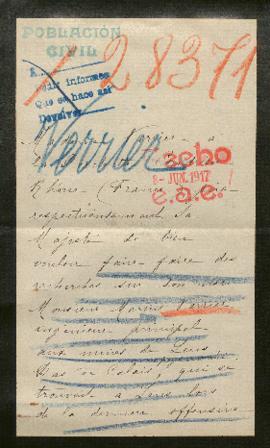 POBLACIÓN
CIVIL
1 28371
A
Que se hace así
Devolver
Madame Verrier à
Verrier
echo
8- JUN. 1917
e.a.e.
Rhône (France) prie
respectueusement Sa
Majesté de bien
vouloir faire faire des
recherches sur son
Monsieur Verrier
ingénieur principal
aux mines de Lens
Pas de Calais, qui se
trouvait à Lens lors
de la dernière offensive